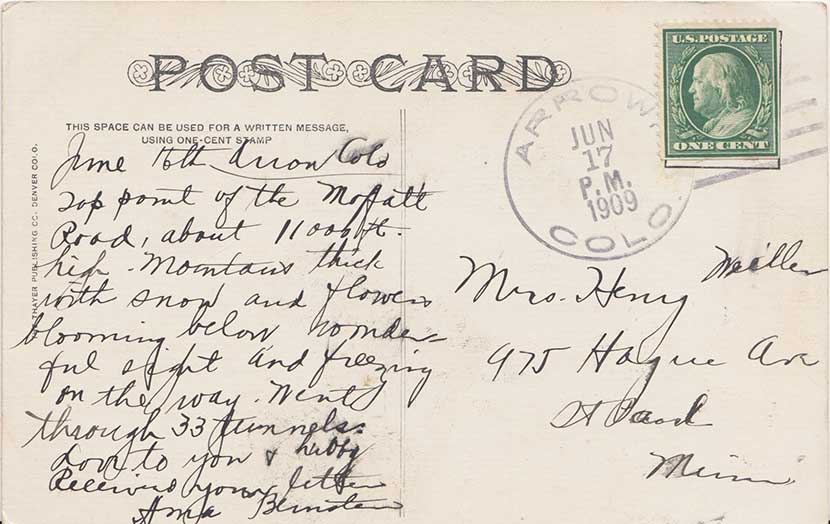 POST CARD
U.S. POSTAGE
ONE CENT
ARROW, COLO.
JUN
17
P.M.
1909
THIS SPACE CAN BE USED FOR A WRITTEN MESSAGE,
USING ONE-CENT STAMP
THAYER PUBLISHING CO. DENVER COLO.
June 16th Arrow Colo
Top point of the Moffatt
Road, about 11000 ft.
high. Mountains thick
with snow and flowers
blooming below wonder-
ful sight and freezing
on the way. Went
through 33 tunnels.
Love to you & hubby
Received your letter
Bernstein
Mrs. Henry Meiller
975 Hague Ave
St Paul
Minn